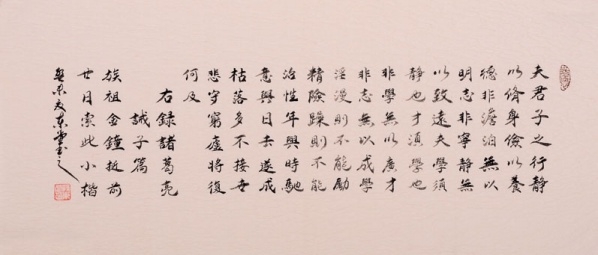 夫君子之行靜
以脩身儉以養
德非澹泊無以
明志非寧靜無
以致遠夫學須
靜也才須學也
非學無以廣才
非志無以成學
淫漫則不能勵
精險躁則不能
治性年與時馳
意與日去遂成
枯落多不接世
悲守窮廬將復
何及
右錄諸葛亮
誡子篇
族祖金鐘抵前
廿月索此小楷